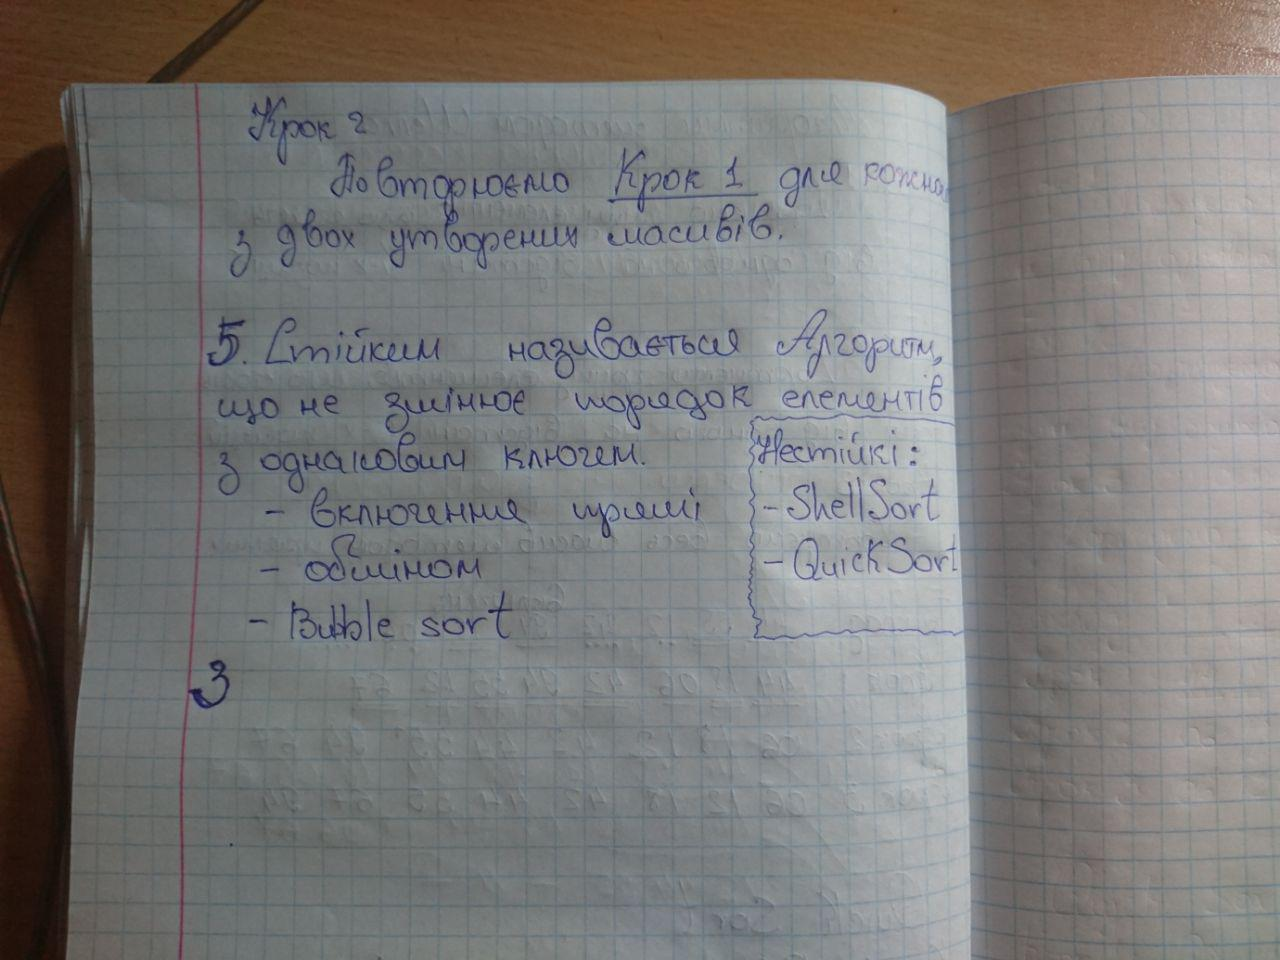 Крок 2
Повторюємо Крок 1 для кожно
з двох утворених масивів.
5. Стійким називається Алгоритм,
що не змінює порядок елементів
з однаковим ключем.
- включення прямі
- обміном
- Bubble sort
Нестійкі:
- ShellSort
- QuickSort
3